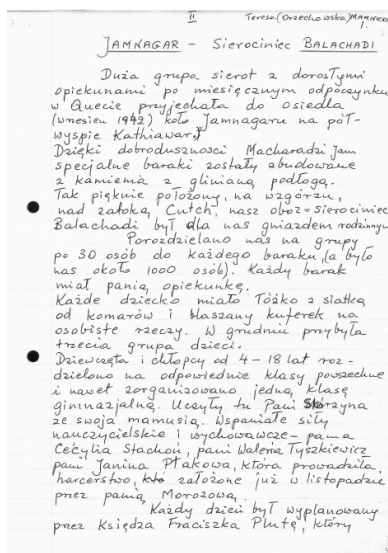 II
Teresa (Orzechowska) MAMNICKA
1.
JAMNAGAR – Sierociniec BALACHADI
Duża grupa sierot z dorosłymi
opiekunami po miesięcznym odpoczynku
w Quecie przyjechała do osiedla
(wrzesień 1942) koło Jamnagaru na pół-
wyspie Kathiawar.
Dzięki dobroduszności Macharadzi Jam
specjalne baraki zostały zbudowane
z kamienia z glinianą podłogą.
Tak pięknie położony, na wzgórzu,
nad zatoką Cutch, nasz obóz = sierociniec
Balachadi był dla nas gniazdem rodzinnym
Porozdzielano nas na grupy
po 30 osób do każdego baraku, (a było
nas około 1000 osób). Każdy barak
miał panią opiekunkę.
Każde dziecko miało łóżko z siatką
od komarów i blaszany kuferek na
osobiste rzeczy. W grudniu przybyła
trzecia grupa dzieci.
Dziewczęta i chłopcy od 4 – 18 lat roz-
dzielono na odpowiednie klasy powszechne
i nawet zorganizowano jedną klasę
gimnazjalną. Uczyły tu Pani Skórzyna
ze swoją mamusią. Wspaniałe siły
nauczycielskie i wychowawcze – pama
Cecylia Stachoń, pani Waleria Tyszkiewicz
pani Janina Ptakowa, która prowadziła
harcerstwo, założone już w listopadzie
przez panią Morozową.
Każdy dzień był wyplanowany
przez Księdza Franciszka Plutę, który